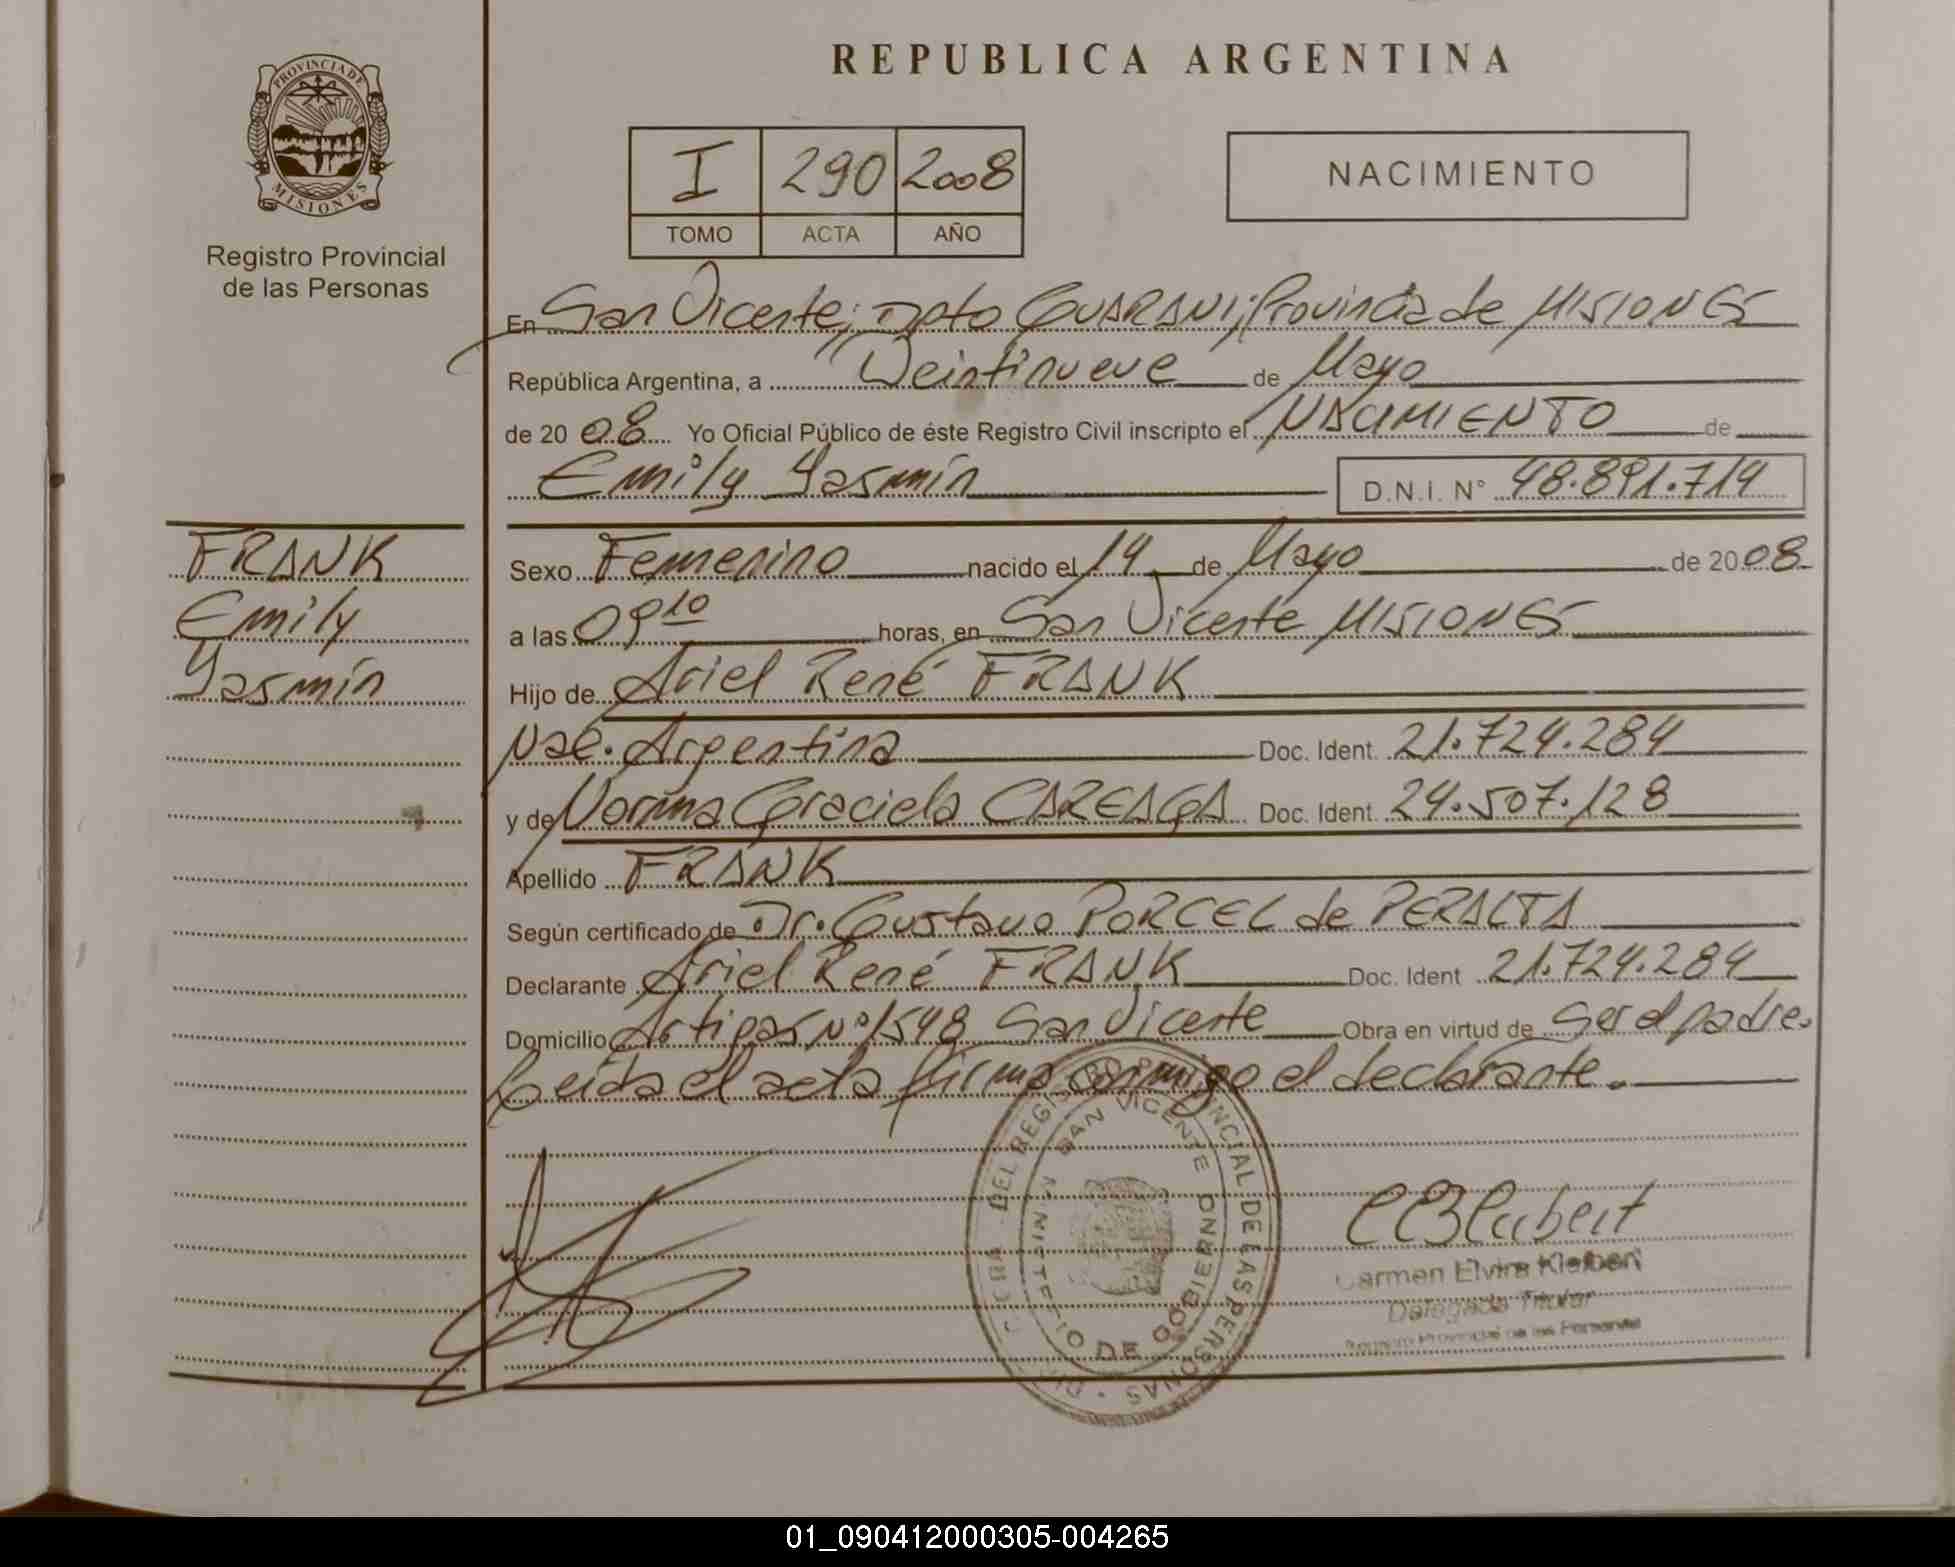 REPUBLICA ARGENTINA
PROVINCIA DE
MISIONES
Registro Provincial
de las Personas
I 290 2008
TOMO ACTA AÑO
NACIMIENTO
En San Vicente; Dpto GUARANI; Provincia de MISIONES
República Argentina, a Veintinueve de Mayo
de 20 08 Yo Oficial Público de éste Registro Civil inscripto el NACIMIENTO de
Emily Yasmín D.N.I. N° 48.891.714
FRANK
Emily
Yasmín
Sexo Femenino nacido el 14 de Mayo de 20 08
a las 09 10 horas, en San Vicente MISIONES
Hijo de Ariel René FRANK
Nac. Argentina Doc. Ident. 21.724.284
y de Norma Graciela CAREAGA Doc. Ident. 24.507.128
Apellido FRANK
Según certificado de Dr. Gustavo PORCEL de PERALTA
Declarante Ariel René FRANK Doc. Ident 21.724.284
Domicilio Artigas Nº 1548 San Vicente Obra en virtud de Ser el padre.
Leída el acta firma conmigo el declarante.
DEL REGISTRO PROVINCIAL DE LAS PERSONAS
SAN VICENTE
MINISTERIO DE GOBIERNO
Carmen Elvira Kleibert
Delegada Titular
Registro Provincial de las Personas
01_090412000305-004265